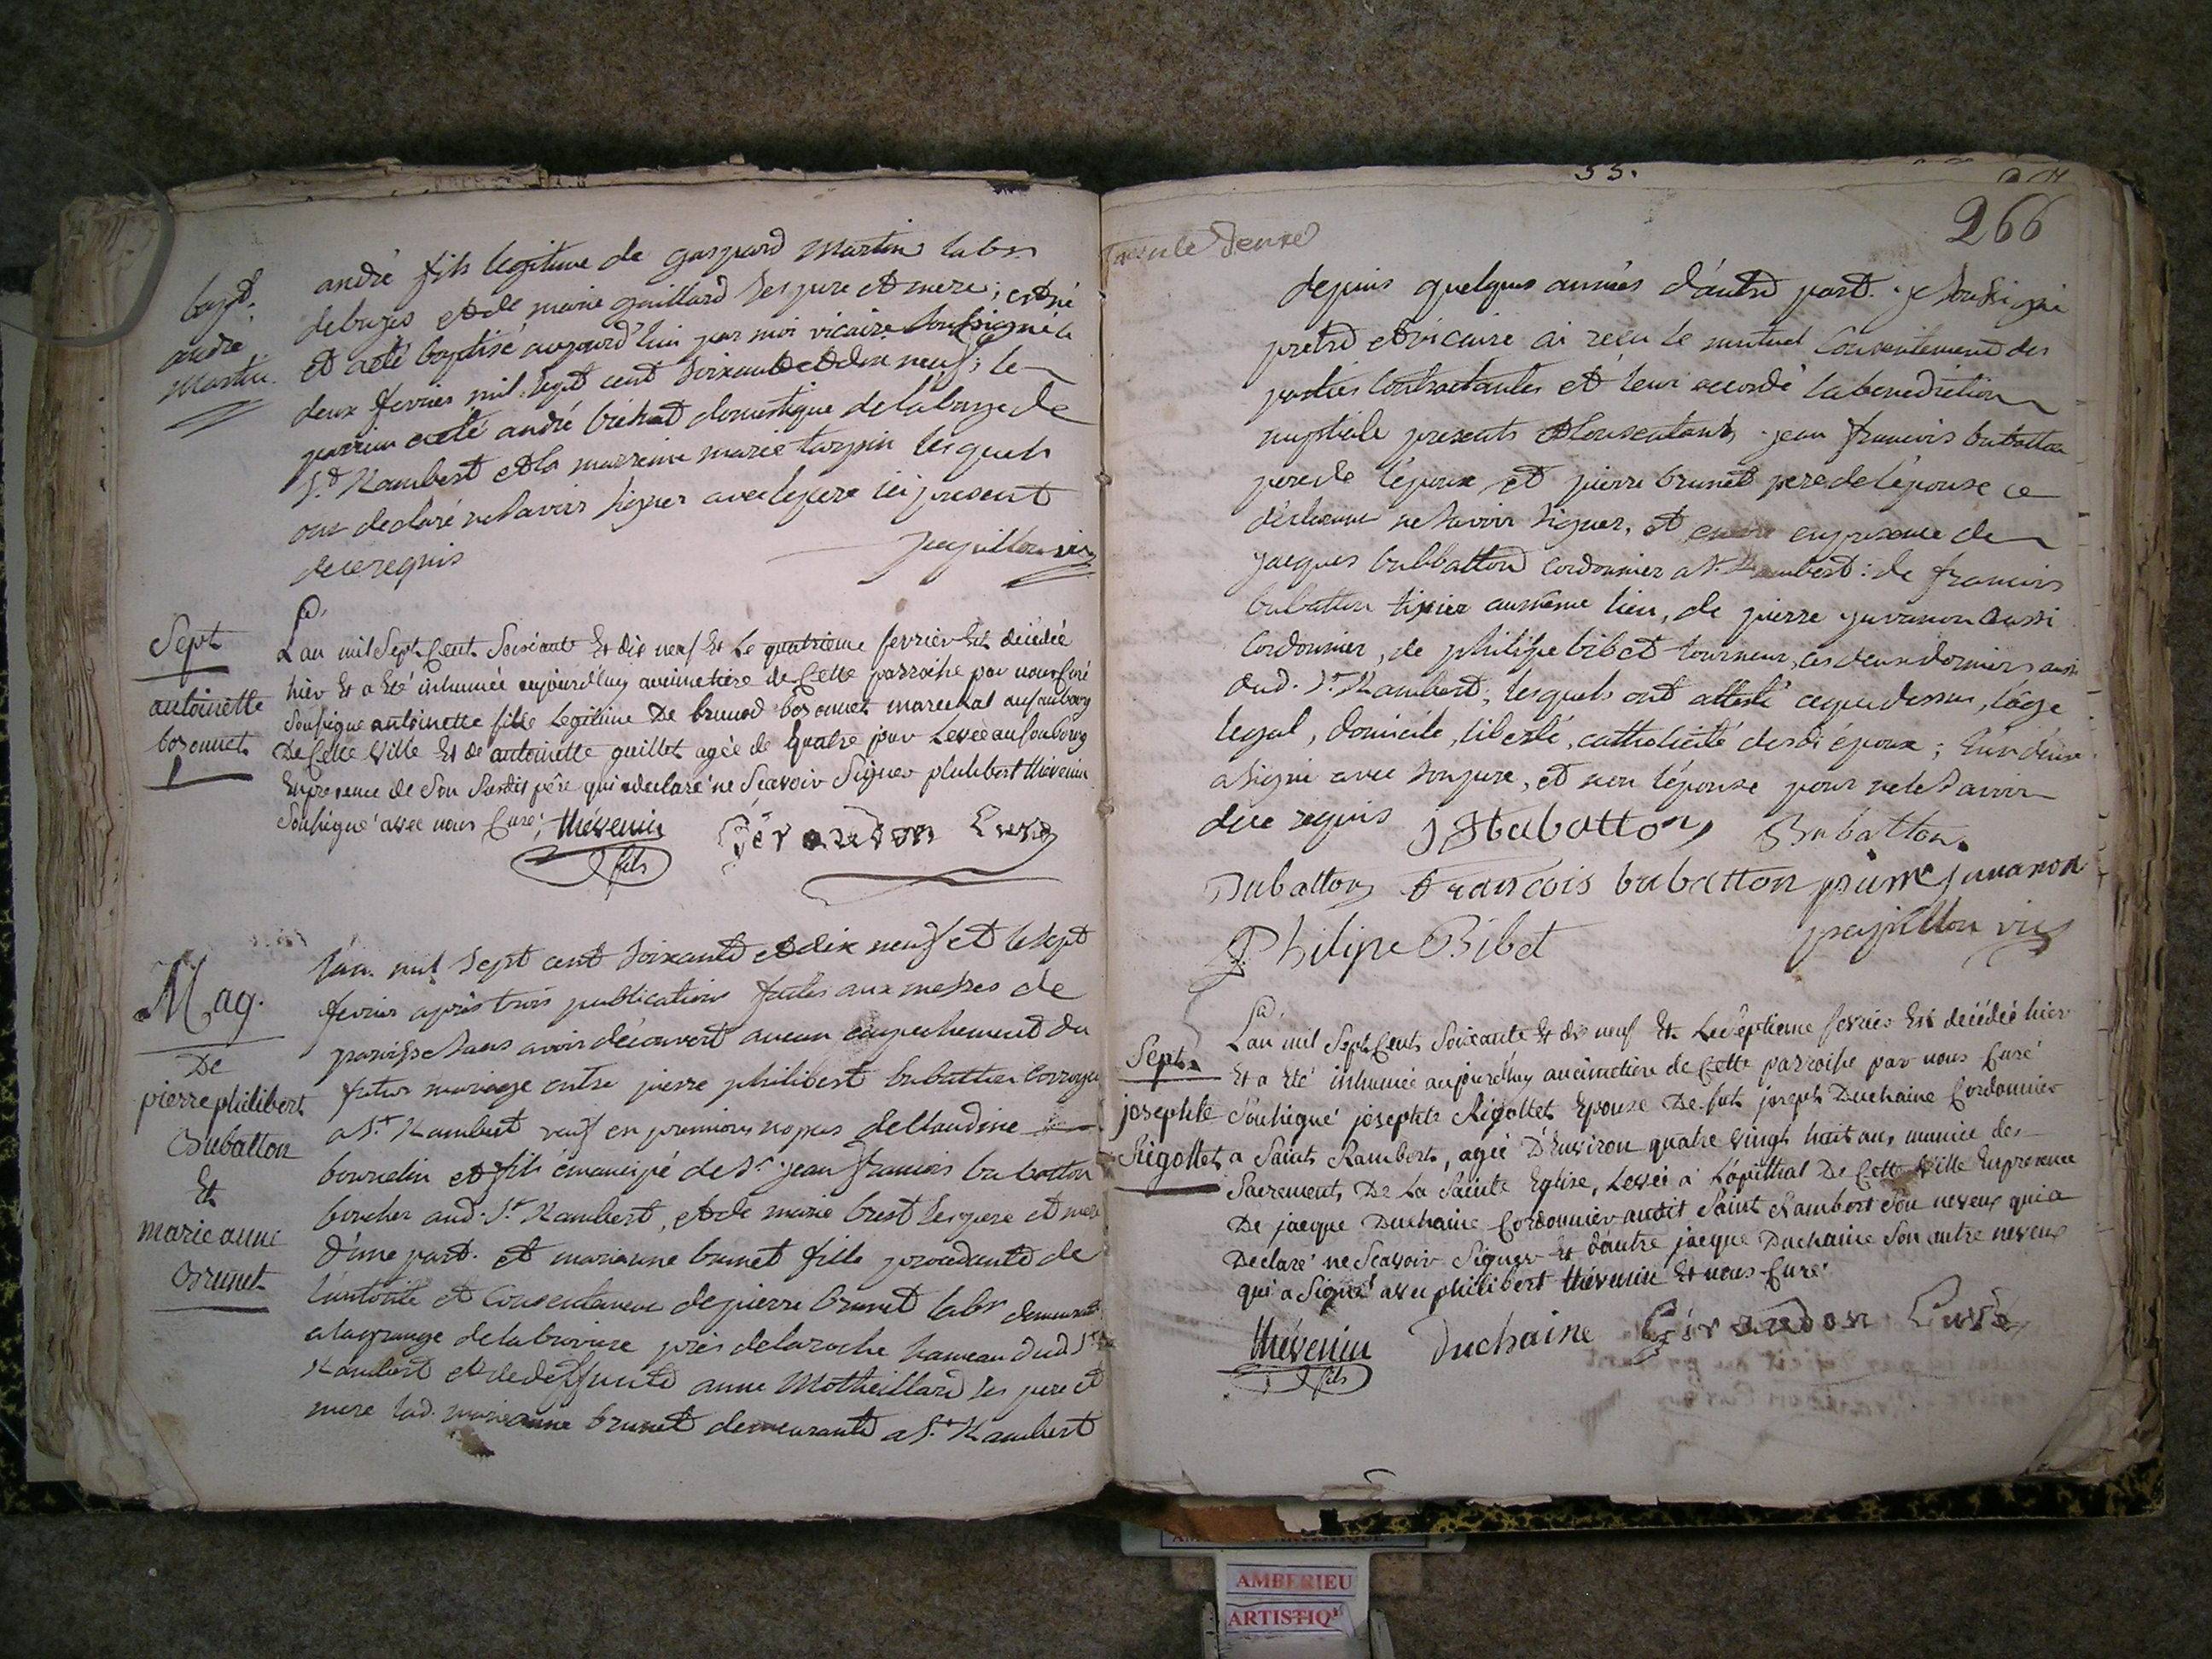 bapt.
andré
Martin.
andré fils legitime de gaspard Martin labr.
debages et de marie gaillard ses pere et mere; est né
et a eté baptisé aujourd'hui par moi vicaire soussigné le
deux fevrier mil sept cent soixante et dix neuf; le
parrain a eté andré bréhat domestique de labaye de
St. Rambert et la marreine marie tarpin lesquels
ont declaré ne savoir signer avec le pere ici present
de ce requis
papillon vic
Sept
antoinette
bozonnet
Lan mil Sept Cent Soixante Et dix neuf Et Le quatrieme fevrier Est décédée
hier Et a Eté inhumée aujourd'huy au cimetiere de Cette parroisse par nous Curé
Soussigné antoinette fille Legitime De bruno bozonnet marechal au fauboug
De Cette Ville Et de antoinette guillet agée de quatre jour Levée au faubourg
En presence de Son Susdit pére qui a declaré ne Scavoir Signer philibert thévenin
Soussigné avec nous Curé; thévenin Géraudon Curé
fils
Mag.
De
pierre philibert
Bubatton
Et
marie anne
Brunet
Lan mil sept cent soixante et dix neuf et le sept
fevrier après trois publications faites aux messes de
paroisse sans avoir découvert aucun empechement du
futur mariage entre pierre philibert bubatton corroyeu
a St. Rambert veuf en premieres nopces de Claudine
bourdin et fils émancipé de Sr. jean francois bubatton
boucher aud. St. Rambert, et de marie brest ses pere et mere
d'une part. et marianne brunet fille procedante de
l'autorité et consentement de pierre brunet labr demeurant
a la grange de la briviere près de la roche hameau dud St.
Rambert et de deffunte anne Motheillard ses pere et
mere lad. marieanne brunet demeurante a St. Rambert
55.
266
depuis quelques années d'autre part. je soussigné
pretre et vicaire ai recu le mutuel consentement des
parties contractantes et leur accordé la benediction
nuptiale presents et consentants jean francois bubatton
pere de l'époux et pierre brunet pere de l'épouse ce
dernier ne savoir signer, et en presence de
jacques bubbatton cordonnier a St. Rambert: de francois
bubatton tixier au meme lieu, de pierre juvanon aussi
cordonnier, de philipe bibet tourneur, ces deux derniers aussi
dud. St. Rambert; lesquels ont attesté ce que dessus, l'age
legal, domicile, liberté, catholicité desdi époux;
a signé avec son pere, et non l'épouse pour ne le savoir
de ce requis J F bubatton Bubatton.
Bubatton francois bubatton pierre juvanon
Philipe Bibet papillon vic
Sept.
josephte
Rigottet
Lan mil Sept Cent Soixante Et dix neuf Et Le Septieme fevrier Est décédée hier
Et a Eté inhumée aujourd'huy au cimetiere de Cette parroisse par nous Curé
Soussigné josephte Rigottet Epouse De fut joseph Duchaine Cordonnier
a Saint Rambert, agée D'Environ quatre vingt huit ans munie des
Sacrements De La Sainte Eglise, Levée a L'opitthal De Cette Ville En presence
De jacque Duchaine Cordonnier audit Saint Rambert Son neveux qui a
Declaré ne Scavoir Signer Et d'autre jacque Duchaine Son autre neveux
qui a Signé avec philibert thévenin Et nous Curé
thévenin Duchaine Géraudon Curé
fils
AMBERIEU
ARTISTIQ